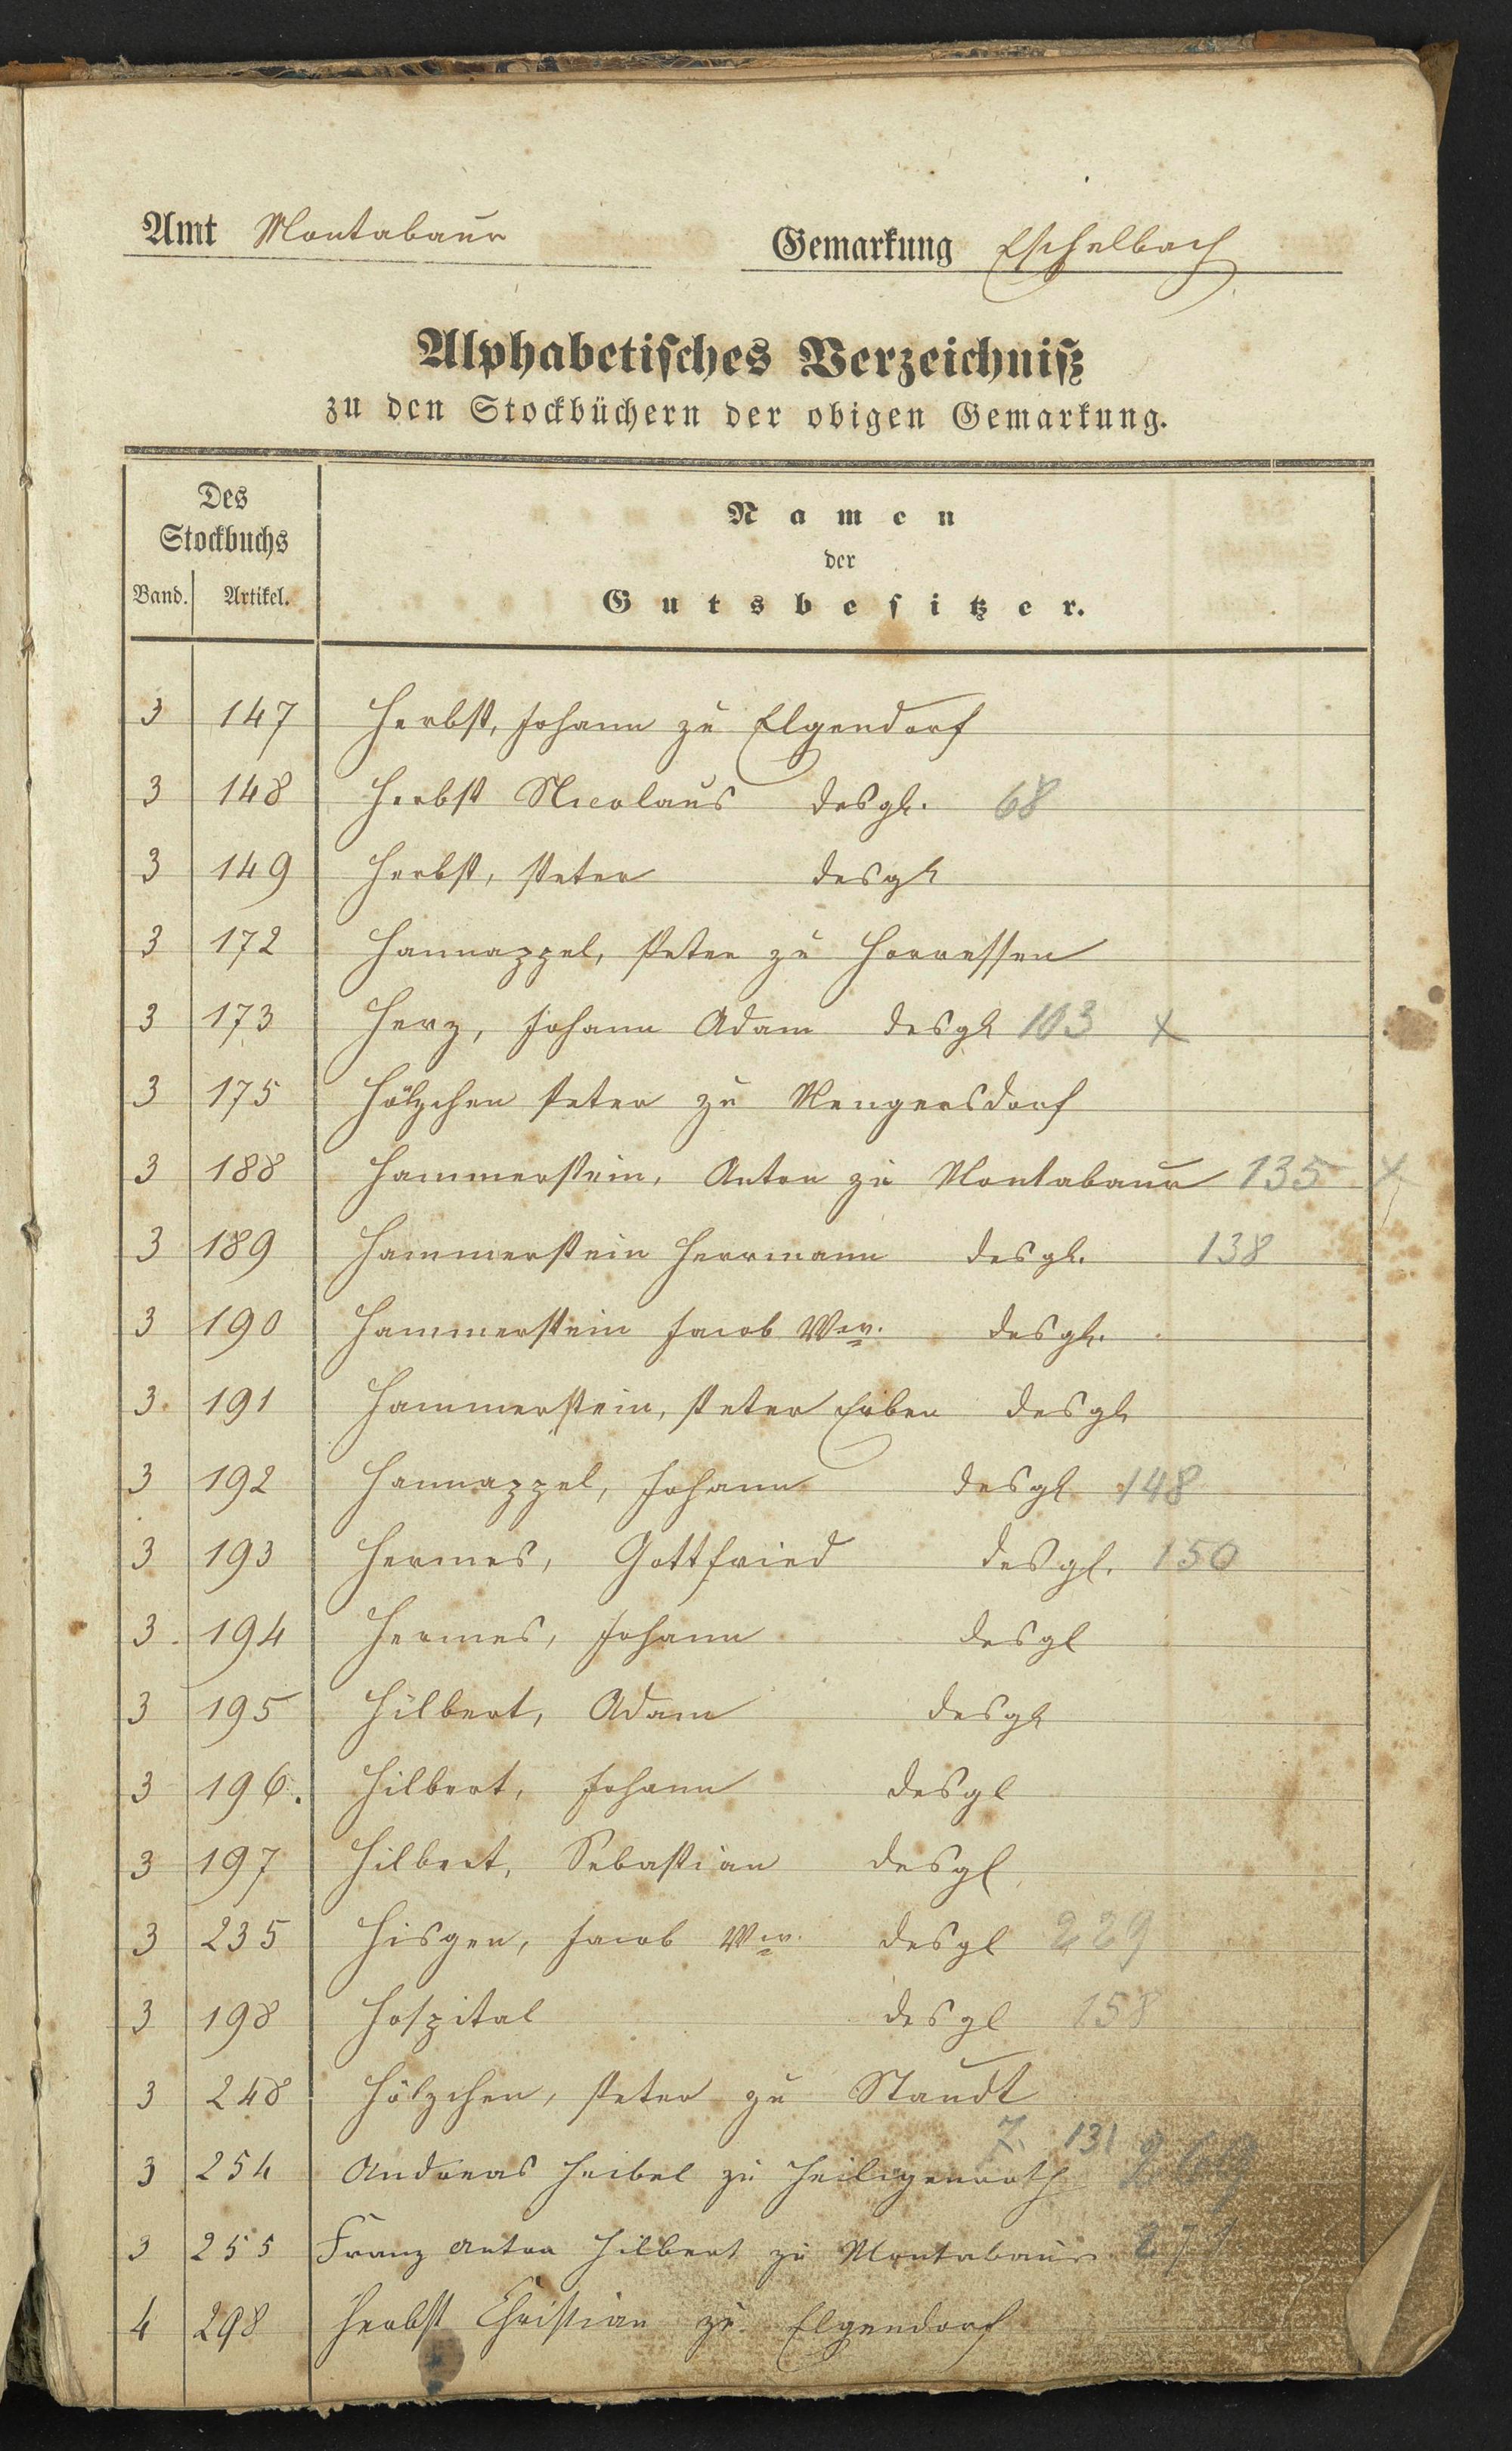 Amt Montabaur Gemarkung Eschelbach
Alphabetisches Verzeichniß
zu den Stockbüchern der obigen Gemarkung.
Des
Stockbuchs
Band. Artikel.
Namen
der
Gutsbesitzer.
3 147 Herbst, Johann zu Elgendorf
3 148 Herbst Nicolaus desgl. 68
3 149 Herbst, Peter desgl
3 172 Hannappel, Peter zu Horressen
3 173 Herz, Johann Adam desgl 103 x
3 175 Hölzchen Peter zu Mengersdorf
3 188 Hammerstein, Anton zu Montabaur 135 x
3 189 Hammerstein Herrmann desgl. 138
3 190 Hammerstein Jacob Ww. desgl.
3. 191 Hammerstein, Peter Erben desgl
3 192 Hannappel, Johann desgl 148
3 193 Hermes, Gottfried desgl. 150
3. 194 Hermes, Johann desgl
3 195 Hilbert, Adam desgl
3 196. Hilbert, Johann desgl
3 197 Hilbert, Sebastian desgl
3 235 Hisgen, Jacob Ww. desgl 229
3 198 Hospital desgl 158
3 248 Hölzchen, Peter zu Staudt
7. 131
3 254 Andreas Heibel zu Heiligenroth
3 255 Franz Anton Hilbert zu Montabaur 271
4 298 Herbst Christian zu Elgendorf